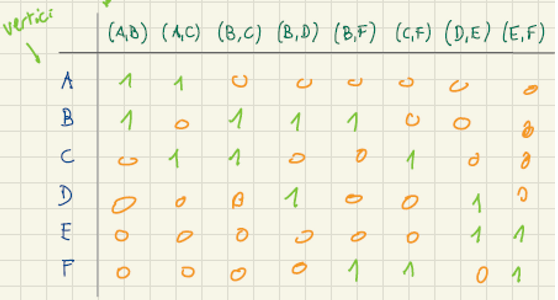 vertici
(A,B) (A,C) (B,C) (B,D) (B,F) (C,F) (D,E) (E,F)
A 1 1 0 0 0 0 0 0
B 1 0 1 1 1 0 0 0
C 0 1 1 0 0 1 0 0
D 0 0 0 1 0 0 1 0
E 0 0 0 0 0 0 1 1
F 0 0 0 0 1 1 0 1